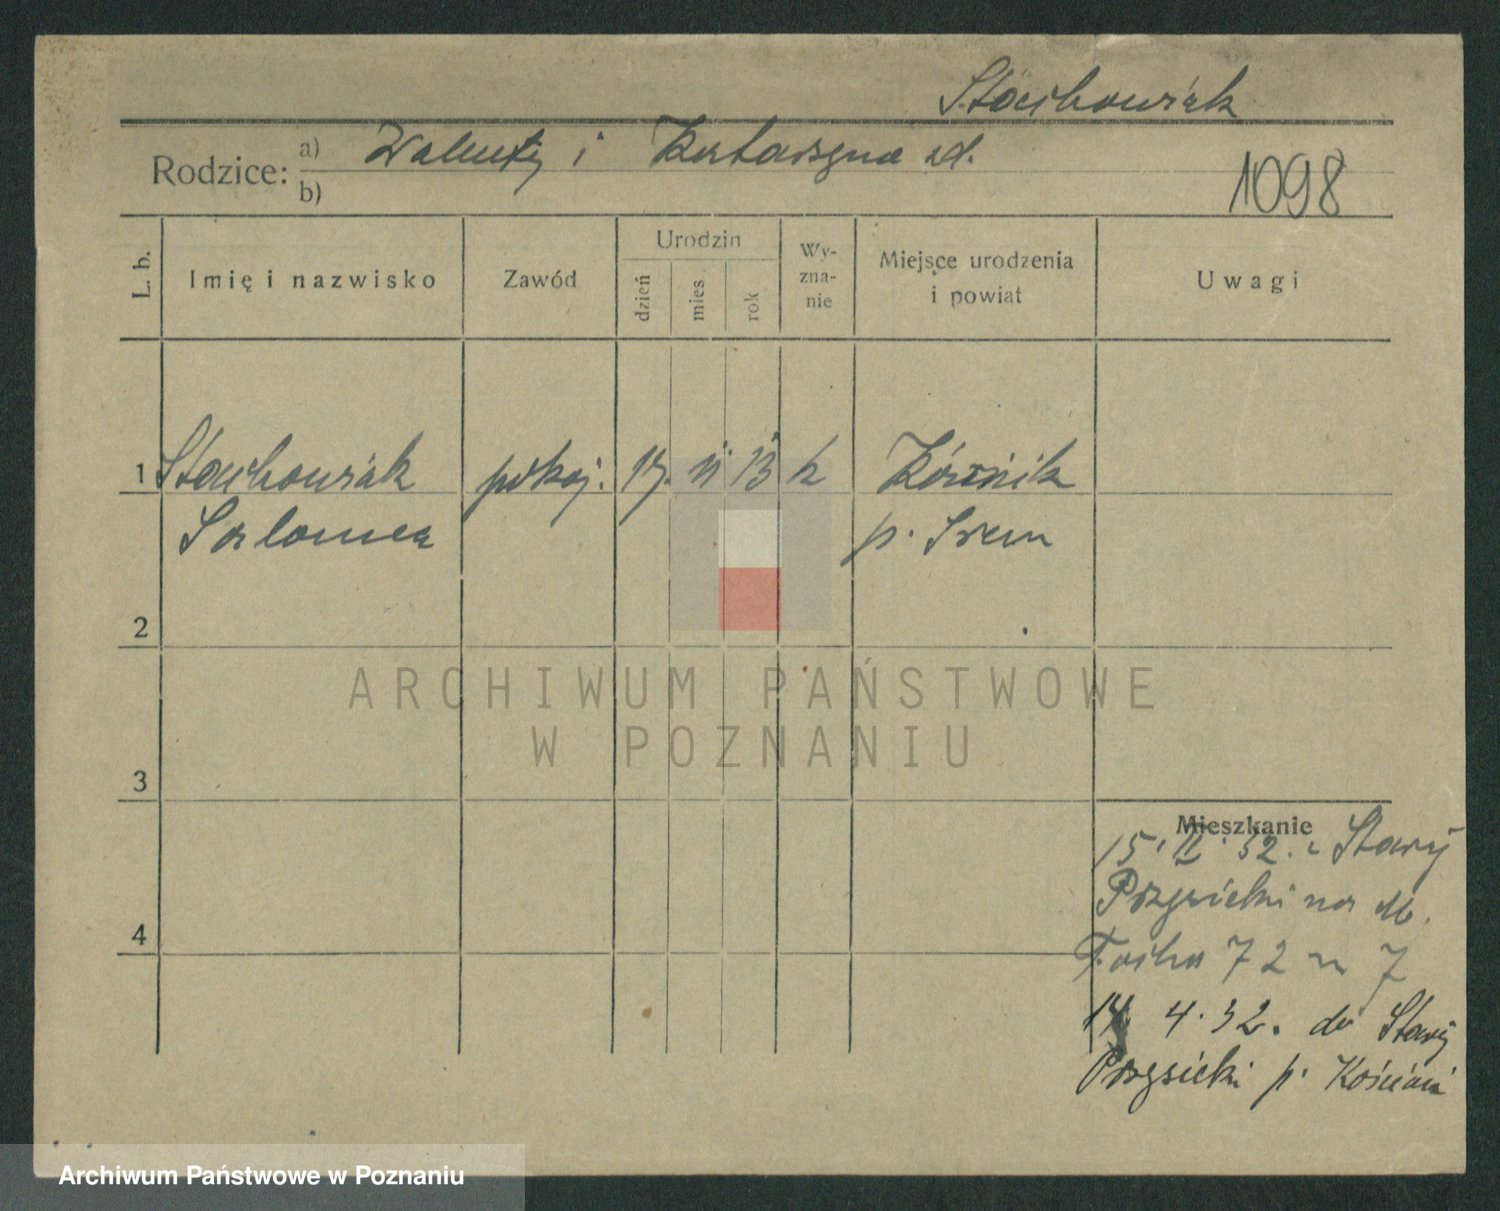 Stachowiak
Rodzice: a) Walenty i Katarzyna zd.
b)
1098
L. b.
Imię i nazwisko
Zawód
Urodzin
dzień
mies
rok
Wy-
zna-
nie
Miejsce urodzenia
i powiat
Uwagi
1 Stachowiak pokoj. 17. 11 13 k Kórnik
Salomea p. Śrem
2
ARCHIWUM PAŃSTWOWE
W POZNANIU
3
Mieszkanie
15. II. 32. z Stary
Przysieki na M.
Focha 72 m 7
4
4.32. do Stary
Przysieki p. Kościań
Archiwum Państwowe w Poznaniu